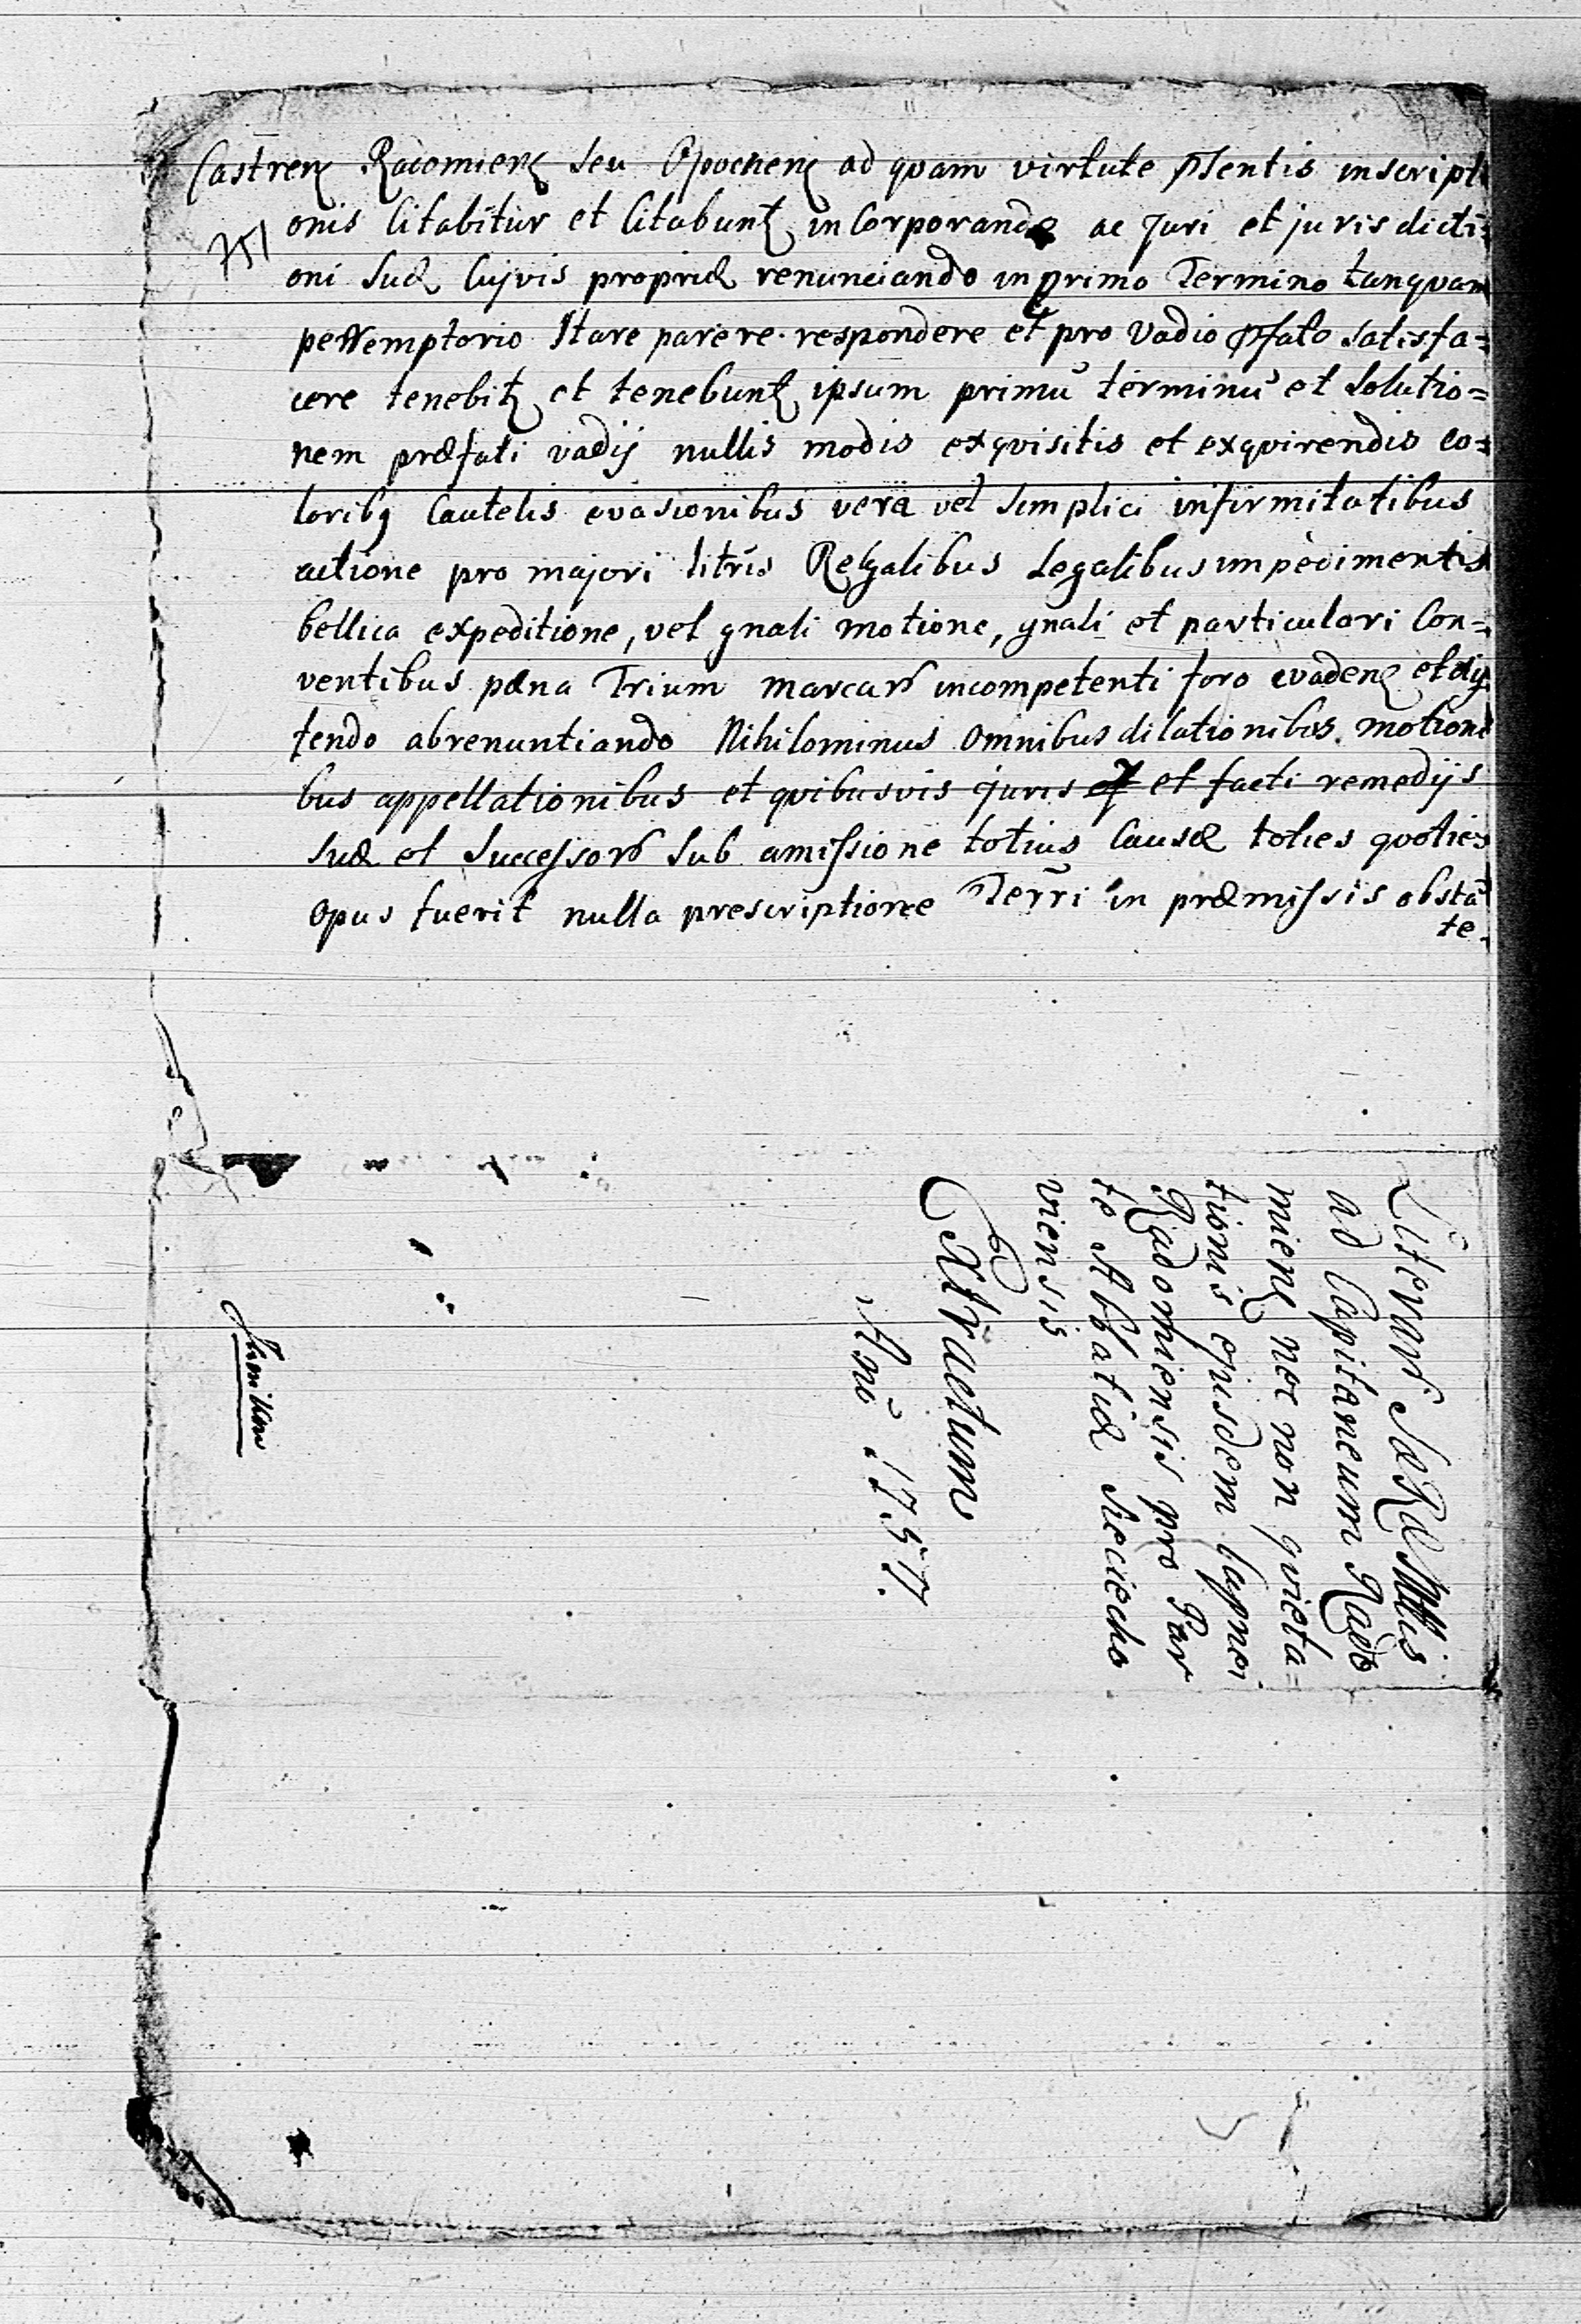 Castrenꝫ Radomienꝫ seu Opocnenꝫ ad quam virtute p̃sentis inscripti
onis Citabitur et Citabuntꝫ in Corporandæ ac Juri et jurisdicti=
oni suæ Cujvis propriæ renunciando in primo Termino tanquam
peremptorio stare parere respondere et pro Vadio p̃fato satisfa=
cere tenebitꝫ et tenebuntꝫ ipsum primū terminū et Solutio=
nem præfati vadij nullis modis exqvisitis et exqvirendis co=
loribꝫ Cautelis evasionibus vera vel simplici infirmitatibus
actione pro majori litr̃is Regalibus Legalibus impedimentis
bellica expeditione, vel gnali motione, gnali et particulari Con=
ventibus pæna Trium marcarꝝ incompetenti foro evadenꝫ et
tendo abrenuntiando Nihilominus omnibus dilationibus motioni
bus appellationibus et qvibusvis juris et facti remedijs
suæ et Successorꝝ Sub amissione totius Causæ toties qvoties
opus fuerit nulla prescriptione Terr̃i in præmissis obstã
te.
751
Literarꝝ SæRæMttis
ad Capitaneum Rado
mienꝫ nec non qvieta=
tionis ejusdem Capnei
Radomiensis pro Par
te Abbatiæ Sieciecho
viensis
Extractum
Anõ 1757.